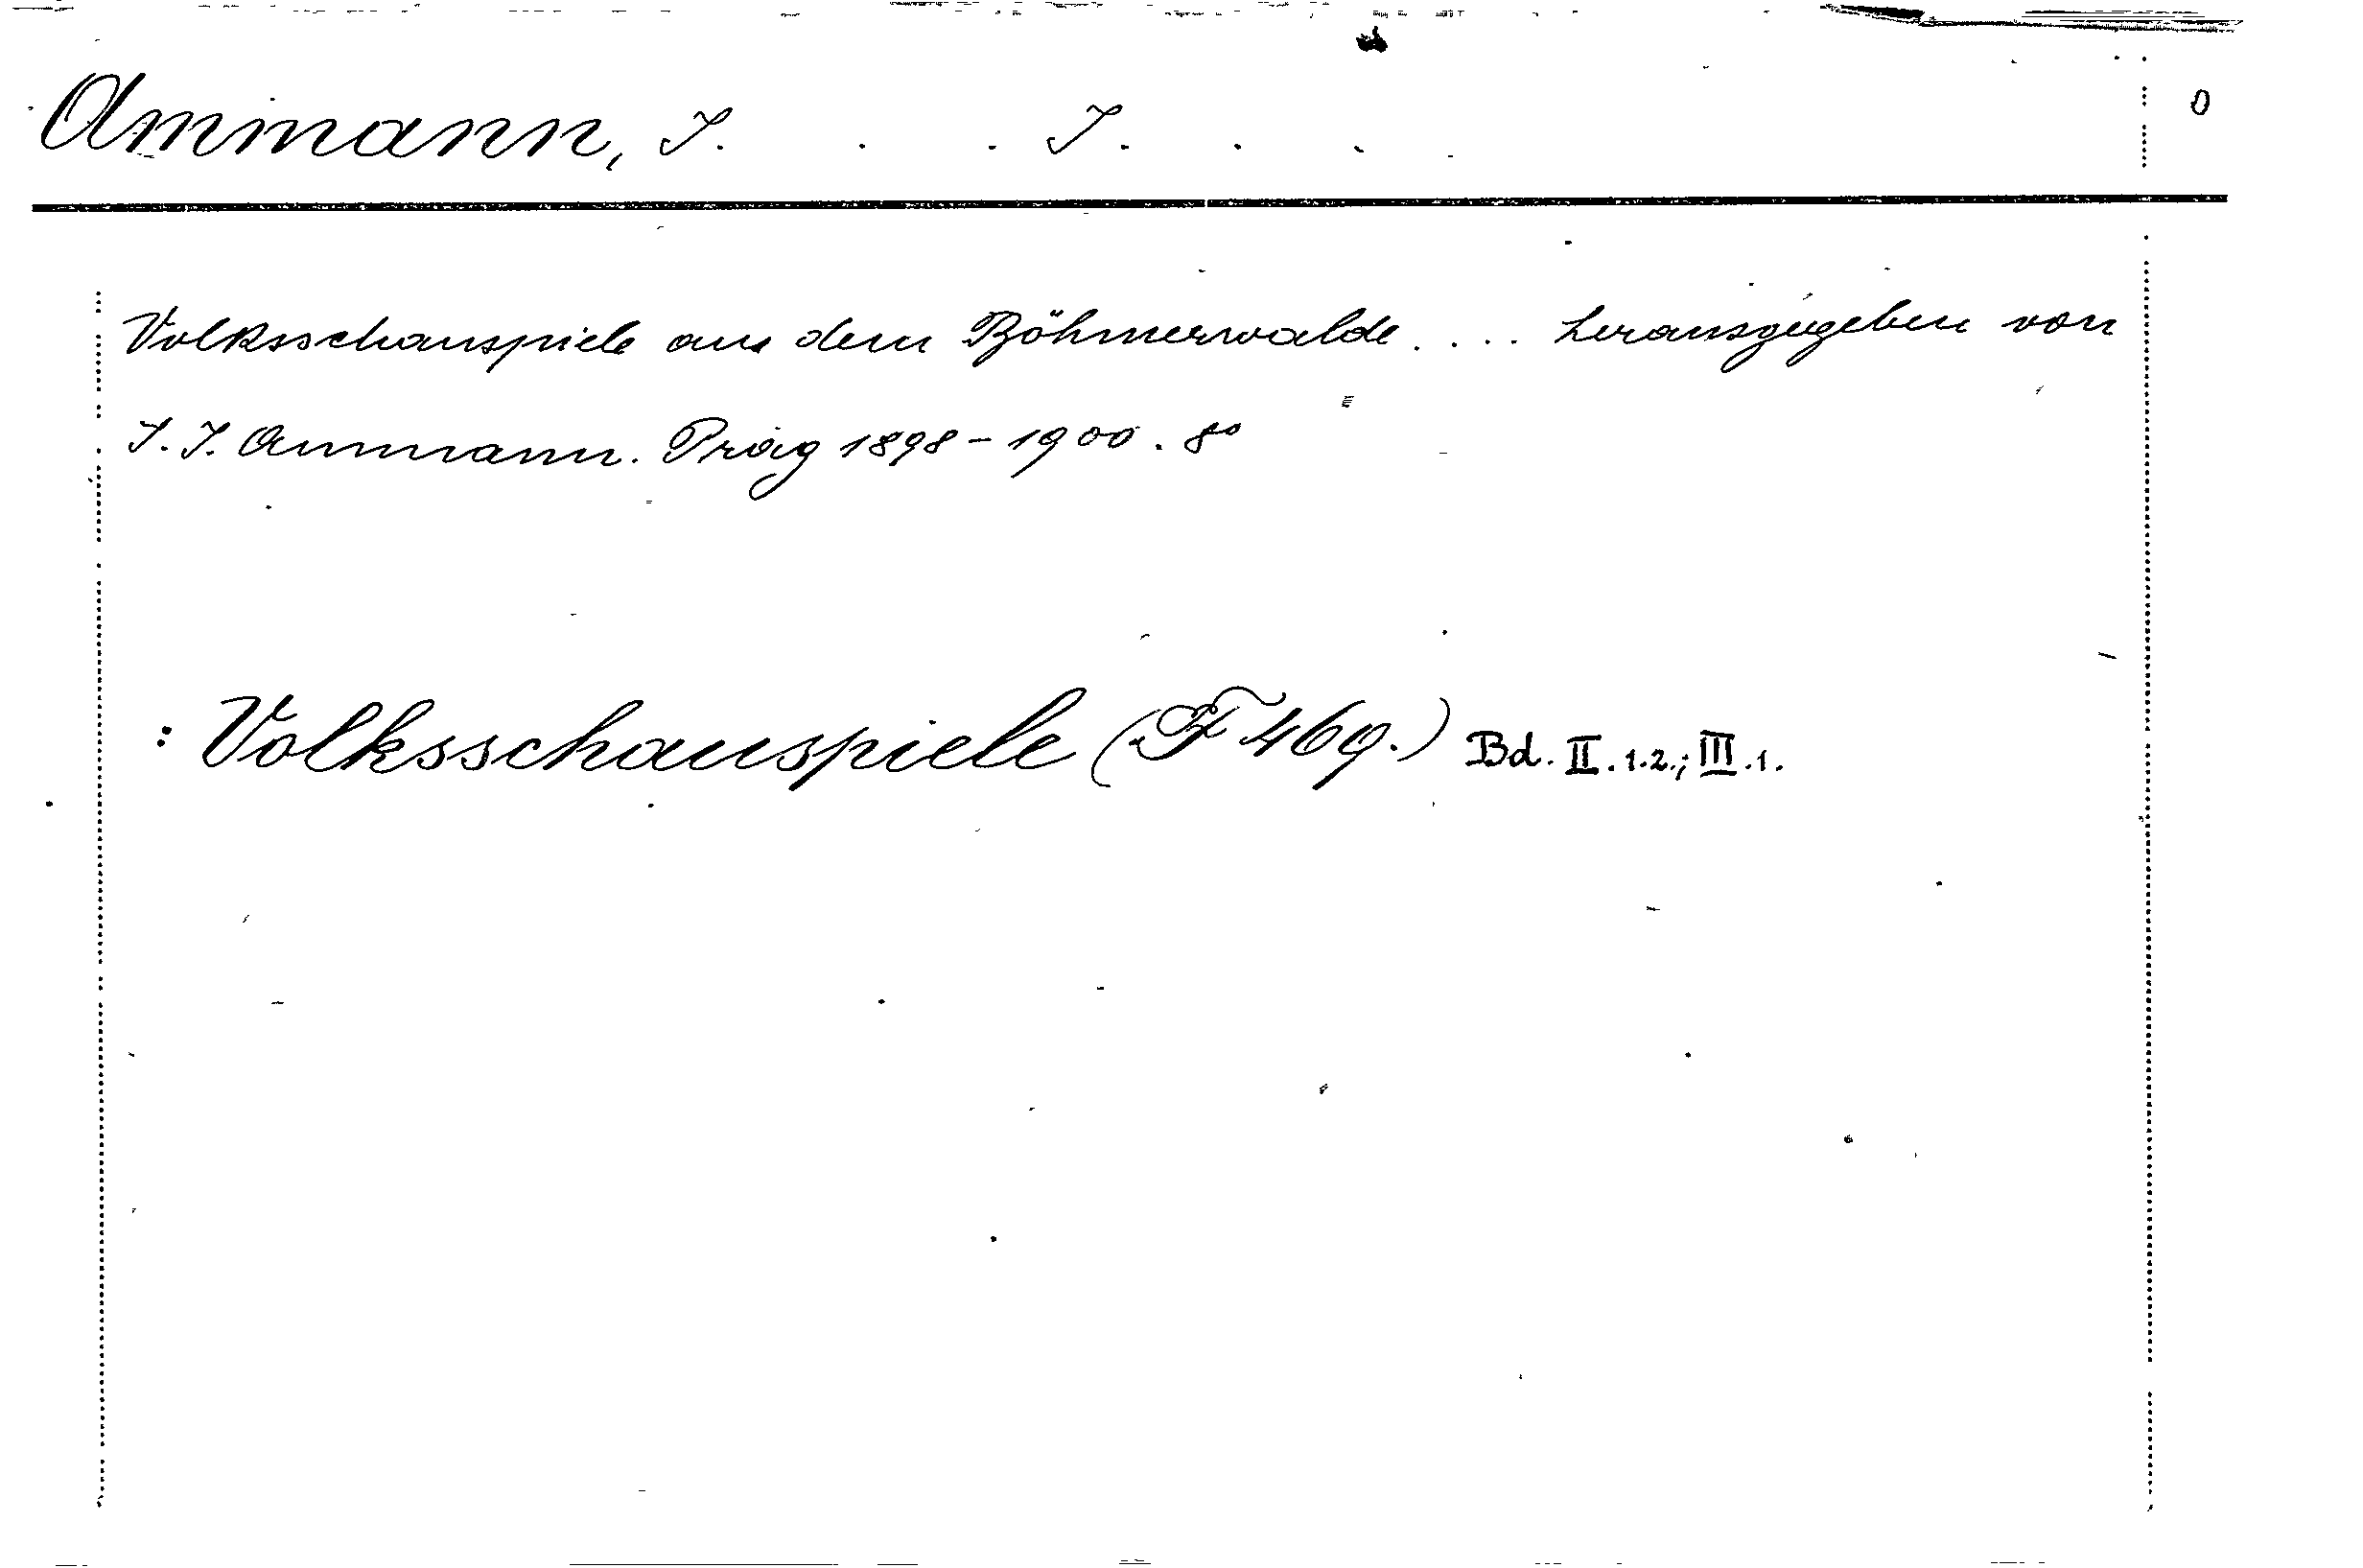 Ammann, J. . . J. . . . 0
Volksschauspiele aus dem Böhmerwalde .... herausgegeben von
J. J. Ammann. Prag 1898-1900. 8°
: Volksschauspiele (F 469.) Bd. II. 1.2.; III. 1.